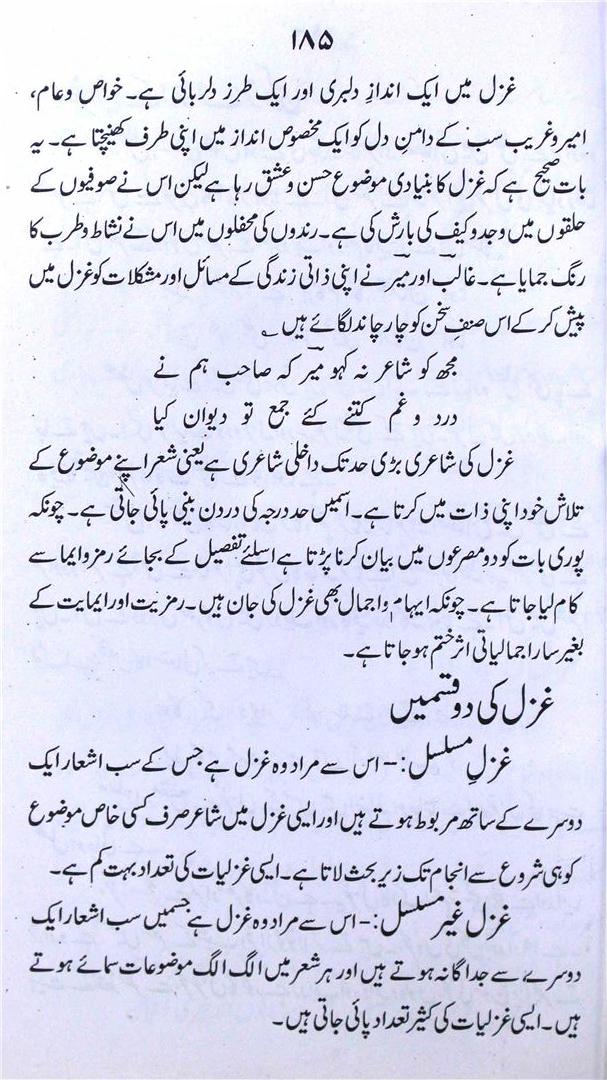 ۱۸۵
غزل میں ایک اندازِ دلبری اور ایک طرز دلربائی ہے۔ خواص و عام،
امیر و غریب سب کے دامنِ دل کو ایک مخصوص انداز میں اپنی طرف کھینچتا ہے۔ یہ
بات صحیح ہے کہ غزل کا بنیادی موضوع حسن و عشق رہا ہے لیکن اس نے صوفیوں کے
حلقوں میں وجد و کیف کی بارش کی ہے۔ رندوں کی محفلوں میں اس نے نشاط و طرب کا
رنگ جمایا ہے۔ غالب اور میر نے اپنی ذاتی زندگی کے مسائل اور مشکلات کو غزل میں
پیش کر کے اس صنف سخن کو چار چاند لگائے ہیں ؎
مجھ کو شاعر نہ کہو میر کہ صاحب ہم نے
درد و غم کتنے کئے جمع تو دیوان کیا
غزل کی شاعری بڑی حد تک داخلی شاعری ہے یعنی شعر اپنے موضوع کے
تلاش خود اپنی ذات میں کرتا ہے۔ اسمیں حد درجہ کی دردن بینی پائی جاتی ہے۔ چونکہ
پوری بات کو دو مصرعوں میں بیان کرنا پڑتا ہے اسلئے تفصیل کے بجائے رمز و ایما سے
کام لیا جاتا ہے۔ چونکہ ایہام و اجمال بھی غزل کی جان ہیں۔ رمزیت اور ایمایت کے
بغیر سارا جمالیاتی اثر ختم ہو جاتا ہے۔
غزل کی دو قسمیں
غزلِ مسلسل :- اس سے مراد وہ غزل ہے جس کے سب اشعار ایک
دوسرے کے ساتھ مربوط ہوتے ہیں اور ایسی غزل میں شاعر صرف کسی خاص موضوع
کو ہی شروع سے انجام تک زیر بحث لاتا ہے۔ ایسی غزلیات کی تعداد بہت کم ہے۔
غزل غیر مسلسل :- اس سے مراد وہ غزل ہے جسمیں سب اشعار ایک
دوسرے سے جداگانہ ہوتے ہیں اور ہر شعر میں الگ الگ موضوعات سمائے ہوتے
ہیں۔ ایسی غزلیات کی کثیر تعداد پائی جاتی ہیں۔